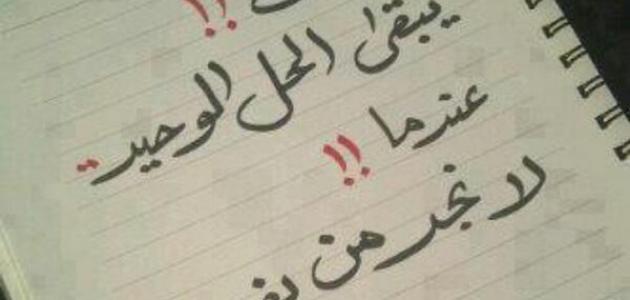 !!
يبقى الحل الوحيد..
عندما !!
لا نجد من